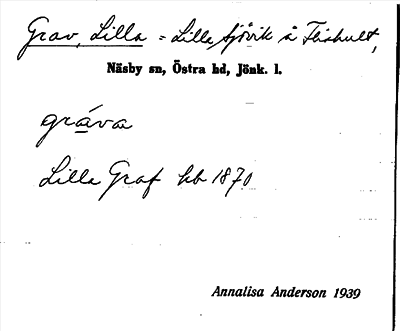 Grav, Lilla = Lilla Sjövik å Flishult,
Näsby sn, Östra hd, Jönk. l.
gráva
Lilla Graf hb 1870
Annalisa Anderson 1939